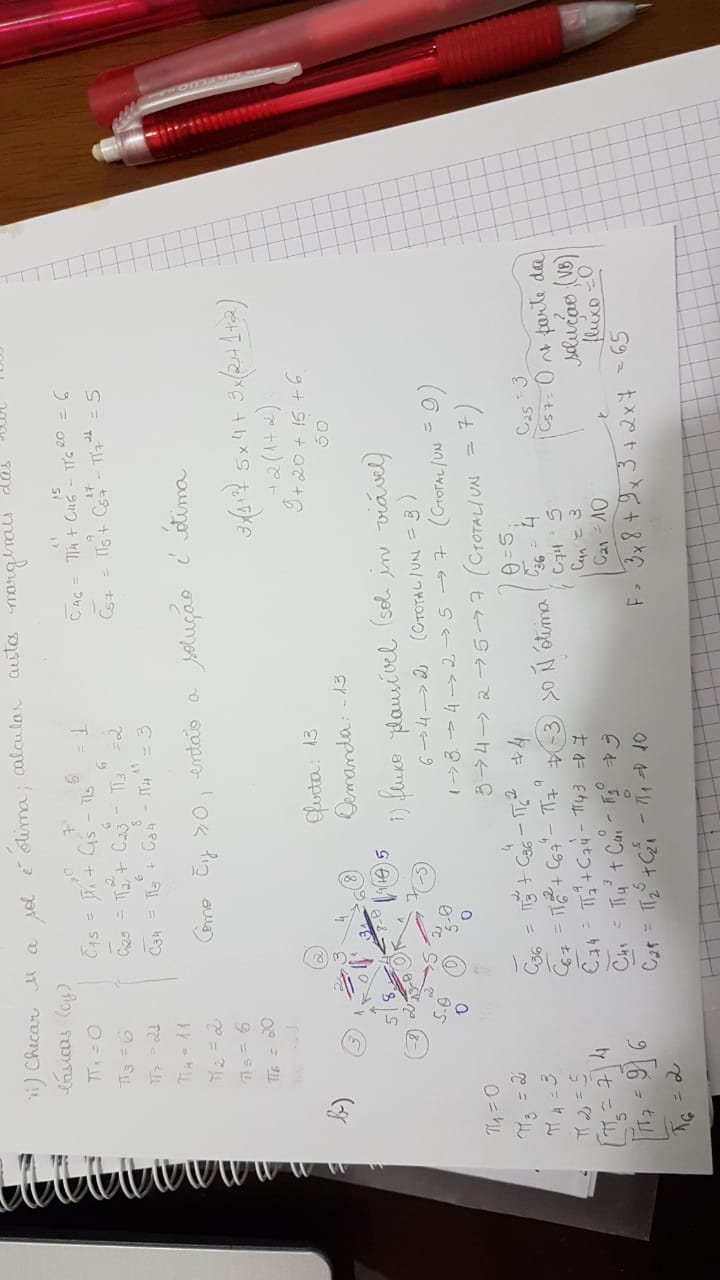 ii) Checar se a sol é ótima; calcular custo marginais das var não
básicas (c̄ij)
π1 = 0
π3 = 6
π7 = 21
π4 = 11
π2 = 2
π5 = 6
π6 = 20
c̄15 = π1 + C15 - π5 = 1
c̄23 = π2 + C23 - π3 = 2
c̄34 = π3 + C34 - π4 = 3
c̄46 = π4 + C46 - π6 = 6
c̄57 = π5 + C57 - π7 = 5
Como c̄ij > 0, então a solução é ótima
3x(1+2) + 5x4 + 3x(2+1+2)
+2(1+2)
9+20+15+6
50
b)
Oferta: 13
Demanda: -13
i) fluxo plausível (sol in viável)
6→4→2 (CTOTAL/UN = 3)
1→3→4→2→5→7 (CTOTAL/UN = 9)
3→4→2→5→7 (CTOTAL/UN = 7)
π1 = 0
π3 = 2
π4 = 3
π2 = 5
π5 = 7 4
π7 = 9 6
π6 = 2
c̄36 = π3 + C36 - π6 ⇒ 4
c̄67 = π6 + C67 - π7 ⇒ -3 >0 Ñ ótima
c̄74 = π7 + C74 - π43 ⇒ 7
c̄41 = π4 + C41 - π1 ⇒
c̄21 = π2 + C21 - π1 ⇒ 10
θ = 5
c̄36 = 4
c̄74 = 5
c̄41 = 3
c̄21 = 10
c̄25 = 3
c̄57 = 0 → parte da
solução (VB)
fluxo = 0
F = 3x8 + 9x3 + 2x7 = 65